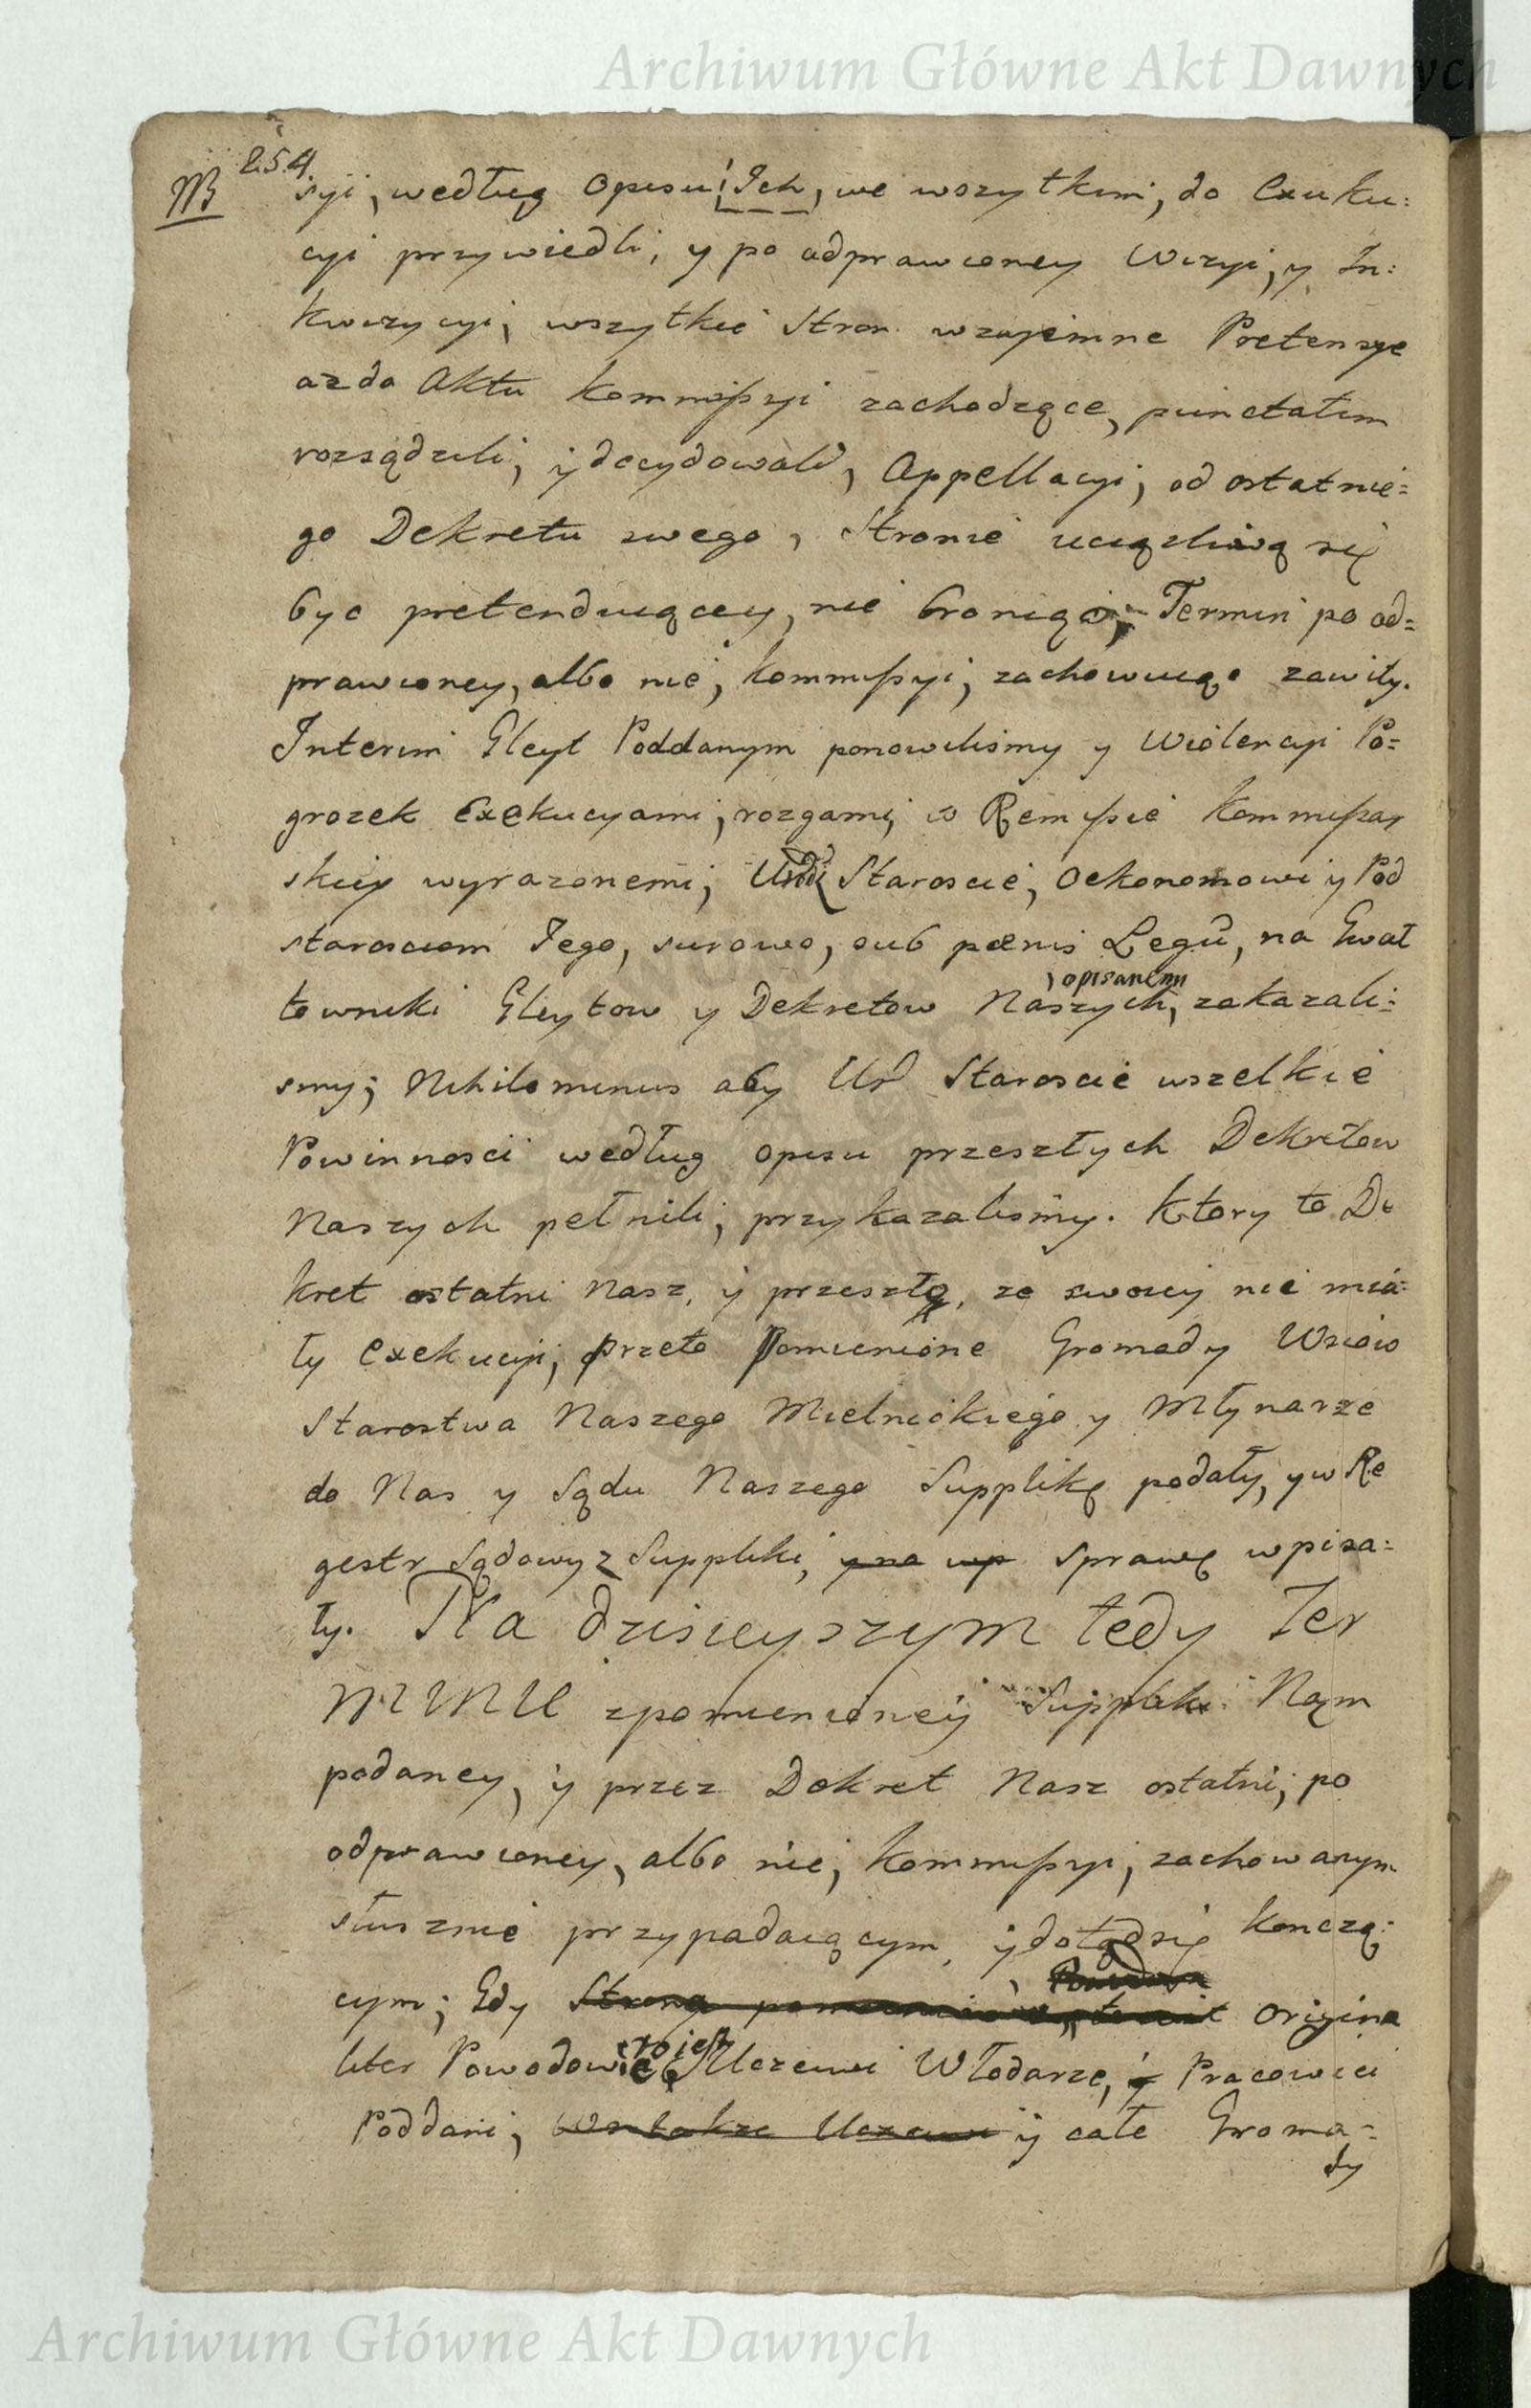 Archiwum Główne Akt Dawnych
254.
NB
syi, według Opisu Ich, we wszytkim, do Exeku:
cyi przywiedli, y po odprawioney Wizyi, y In:
kwizycyi, wszytkie Stron wzajemne Pretensye
az do Aktu Kommißyi zachodzące, punctatim
rozsądzili, y decydowali, Appellacyi, od ostatnie:
go Dekretu swego, Stronie uciązliwą się
byc pretenduiącey, nie broniąc, Termin po od=
prawioney, albo nie, Kommißyi, zachowuiąc zawity.
Interim Gleyt Poddanym ponowilismy y Wiolencyi Po=
grozek Exekucyami, rozgami, w Remißie Kommißar
skiey wyrazonemi, Staroscie, Oekonomowi y Pod
starosciom Jego, surowo, sub pœnis Legũ, na Gwał
, opisanemi
towniki Gleytow y Dekretow Naszych, zakazali:
smy; Nihilominus aby Ur Staroscie wszelkie
Powinnosci według opisu przeszłych Dekretow
Naszych pełnili, przykazalismy. Ktory to De
kret ostatni Nasz, y przeszłe, ze swoiey nie mia:
ły Exekucyi, przeto Pomienione Gromady Wsiow
Starostwa Naszego Mielnickiego y Młynarze
do Nas y Sądu Naszego Supplikę podały, y w Re
gestr Sądowy z Suppliki, y na wp sprawę wpisa:
ły. Na dzisieyszym tedy Ter
minie zpomienioney Suppliki Nam
podaney, y przez Dekret Nasz ostatni, po
odprawioney, albo nie, Kommißyi, zachowanym
słusznie przypadaiącym, y dotąd się konczą:
cym; Gdy Strona originа
to jest
liter Powodowie Uczciwi Włodarze, y Pracowici
Poddani, y całe Groma=
dy
Archiwum Główne Akt Dawnych